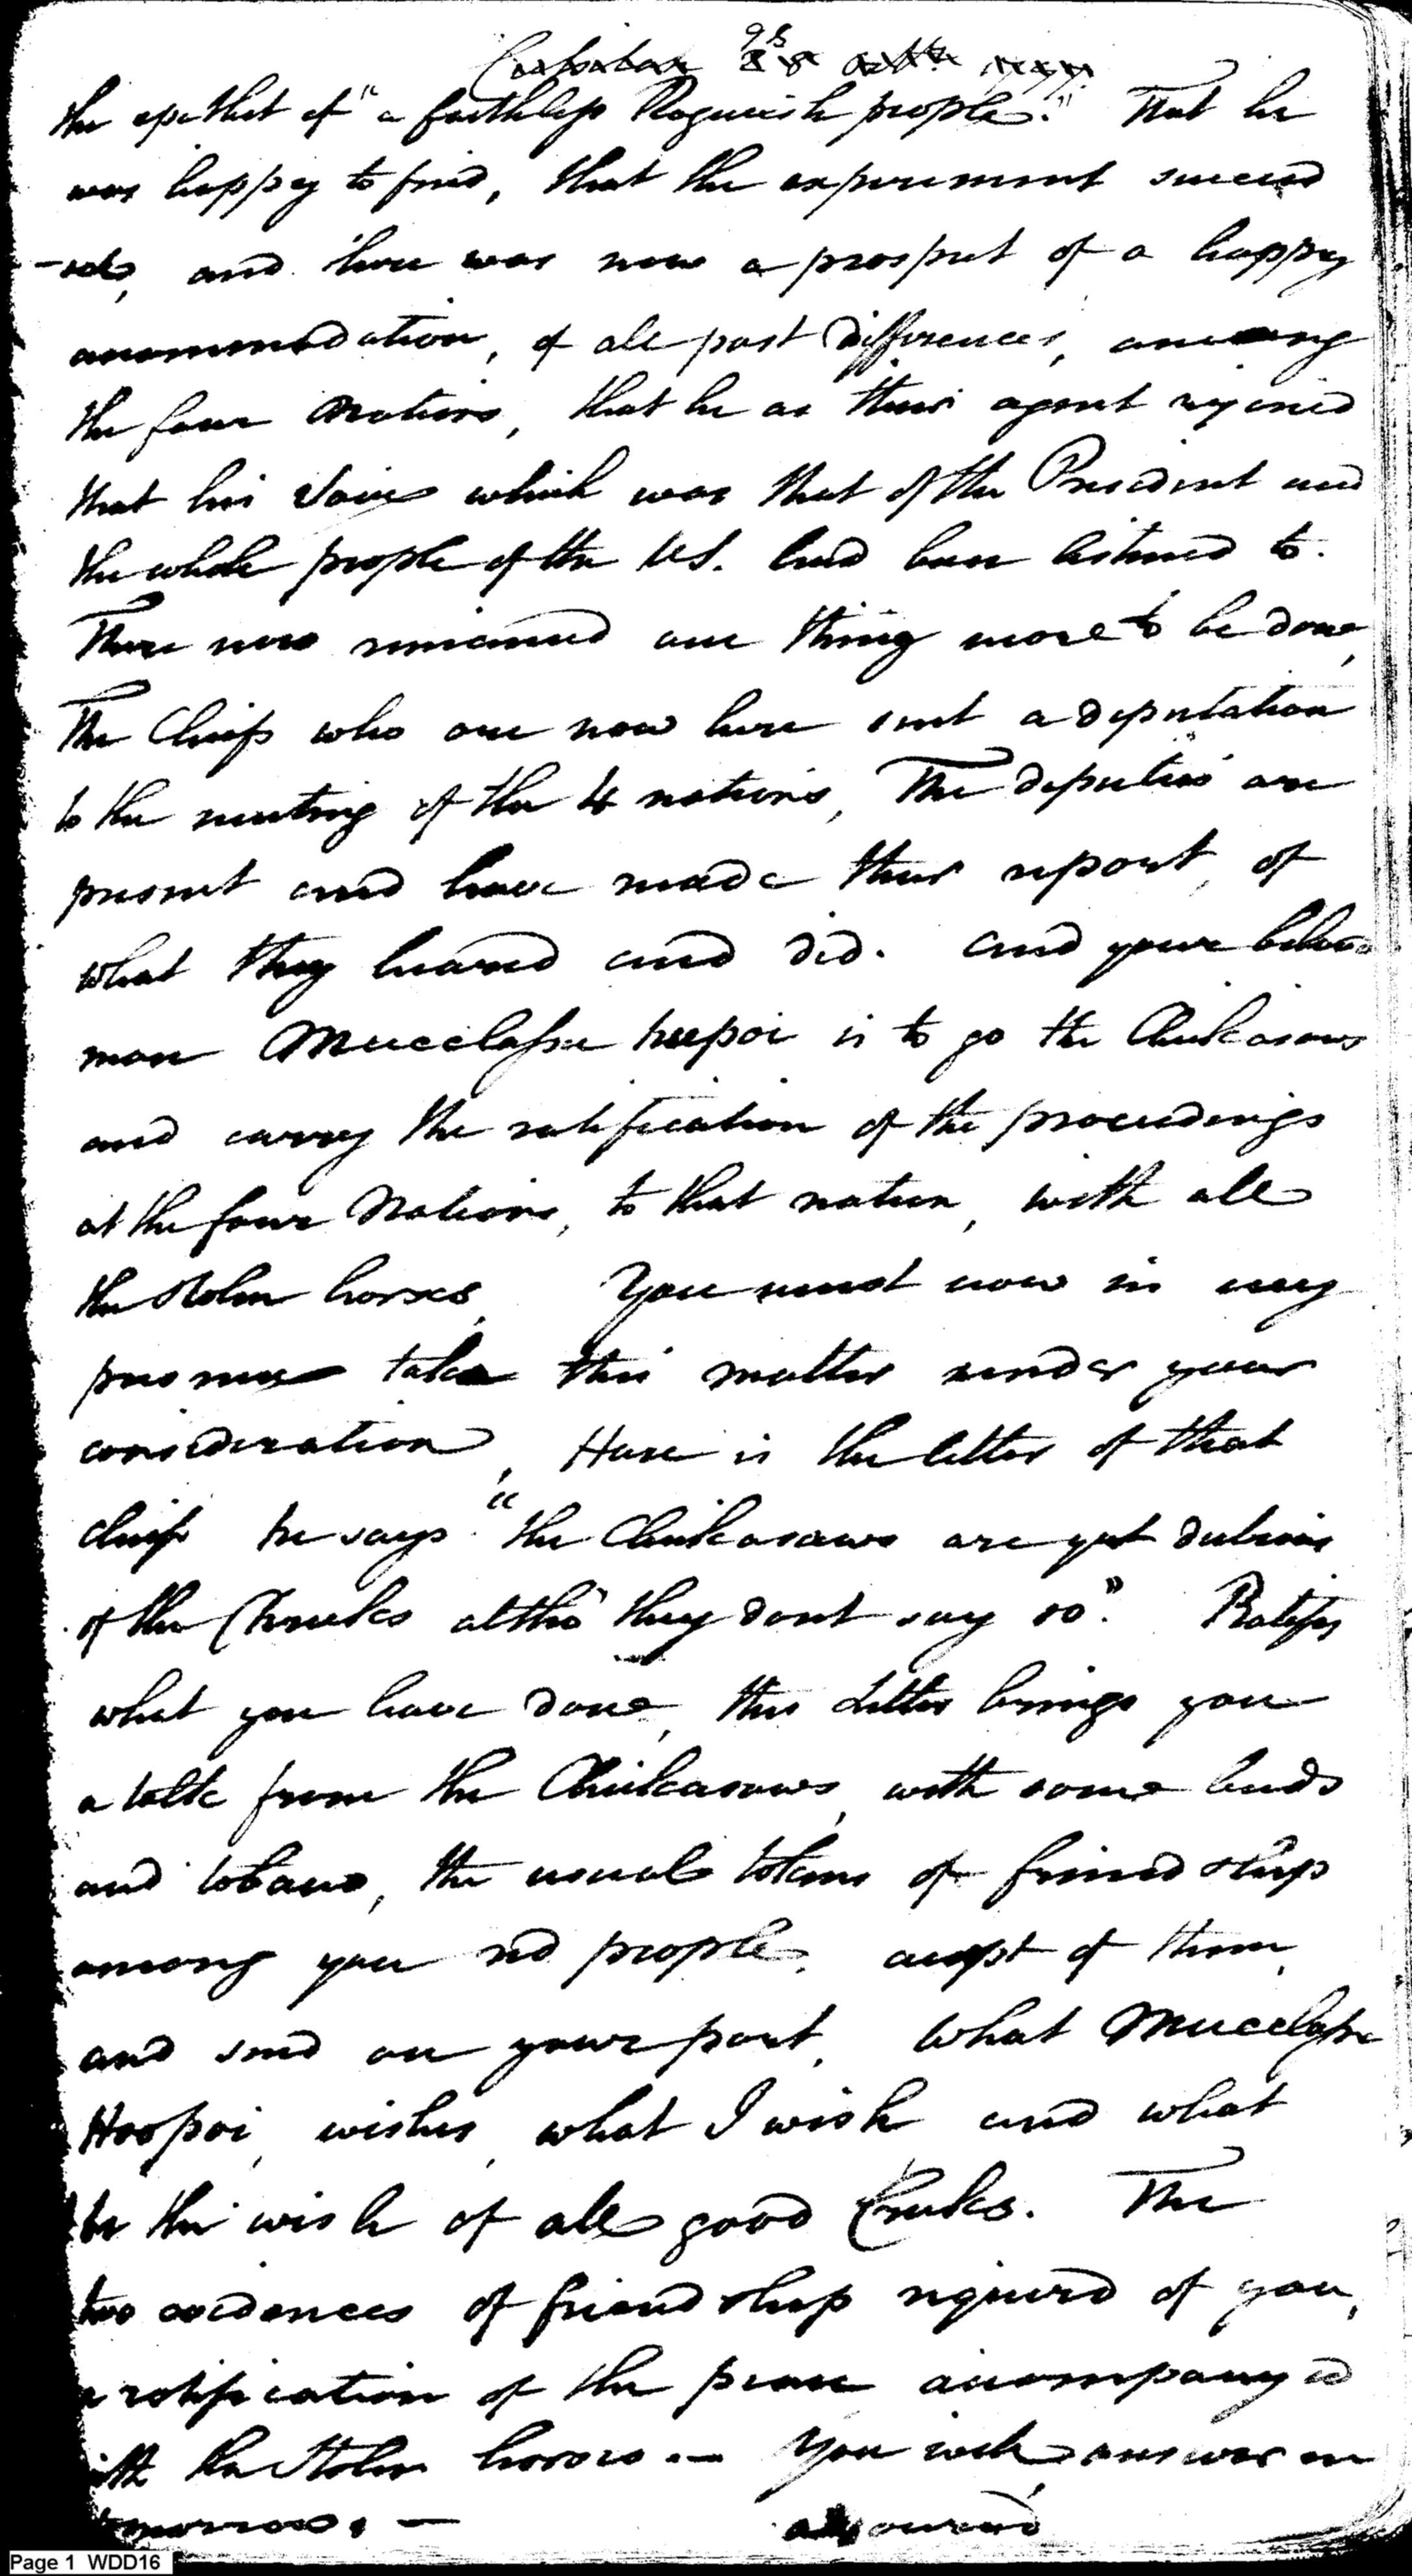 the epethet of "a faithless Roguish people." That he
was happy to find, that the experiment succeed
-ed, and there was now a prospect of a happy
accommodation, of all past differences, among
the four Nations, that he as their agent rejoiced
that his Voice which was that of the President and
the whole people of the U.S. had been listened to.
There now remained one thing more to be done,
The Chiefs who are now here sent a deputation
to the meeting of the 4 nations, The deputies are
present and have made their report, of
what they heared and did. and your
man Mucclassee hoopoi is to go the Chickasaws
and carry the ratification of the proceedings
at the four Nations, to that nation, with all
the stolen horses, You must now in my
presence take this matter under your
consideration, Here is the letter of that
chief he says "the Chickasaws are yet dubious
of the Creeks altho' they dont say so". Ratify
what you have done, this Letter brings you
a talk from the Chickasaws, with some beads
and tobacco, the usual tokens of friendship
among you red people, accept of them,
and send on your part, what Mucclassee
Hoopoi, wishes, what I wish and what
is the wish of all good Creeks. The
two evidences of friendship required of you,
a ratification of the peace accompanyed
with the Stolen horses. — You will answer me
tomorrow. — adjourned
Page 1 WDD16